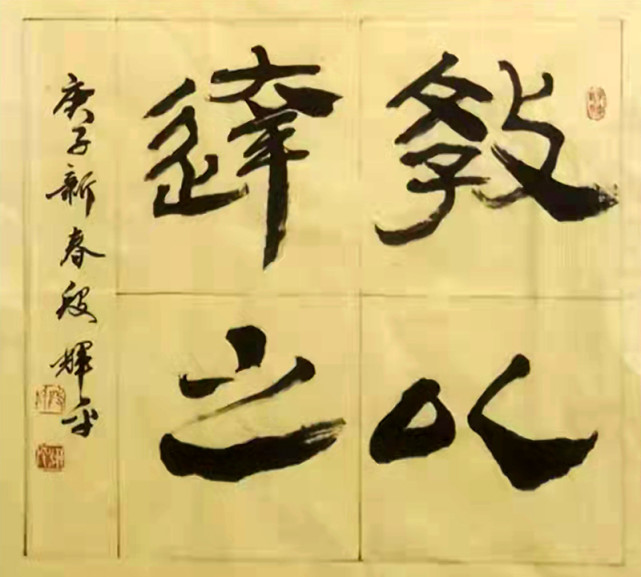 敎以
達之
庚子新春段輝平